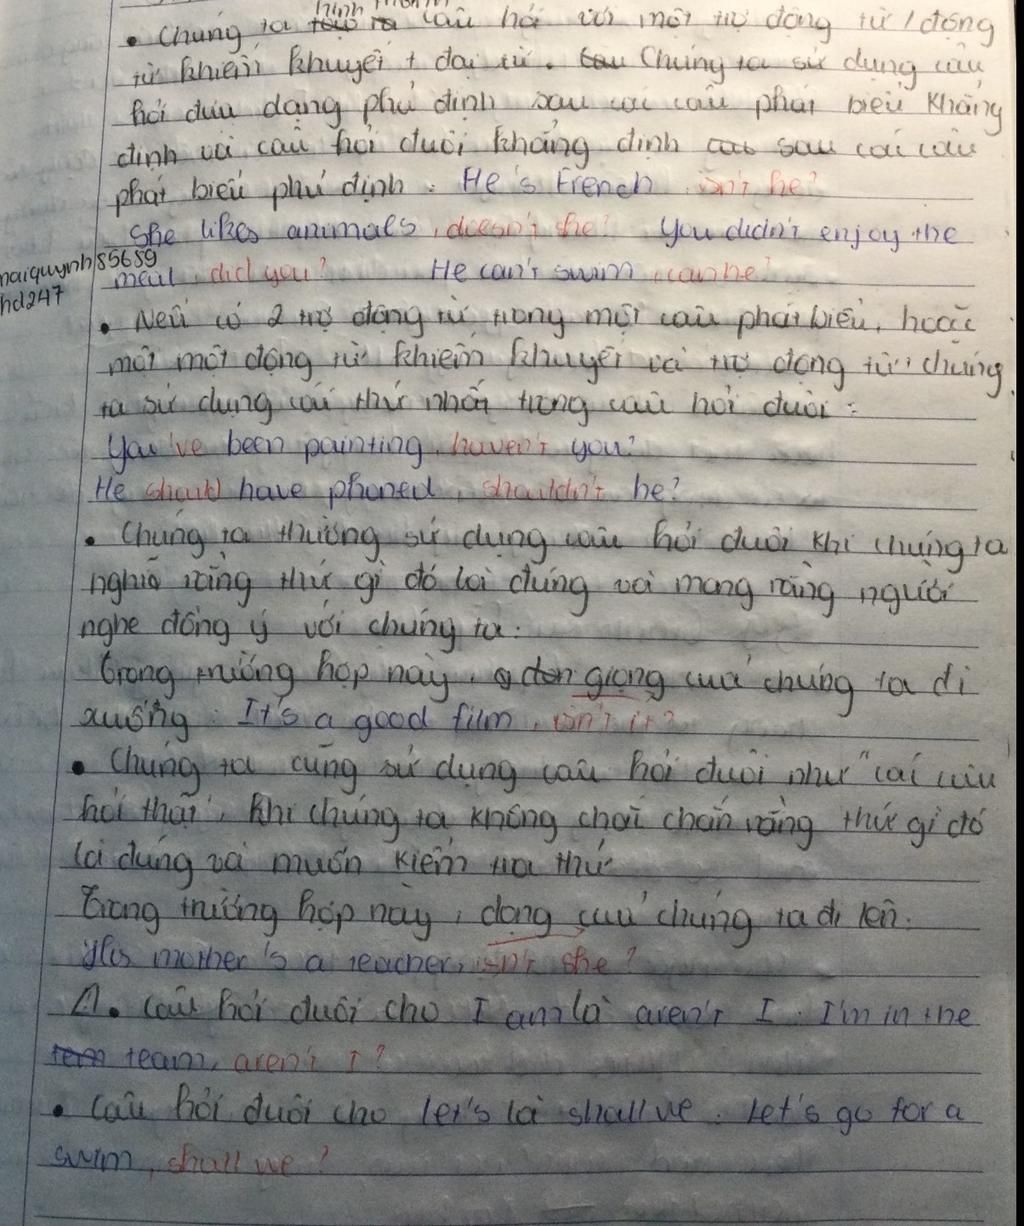 hình thành
• Chúng ta câu hỏi với một trợ động từ / động
từ khiếm khuyết + đại từ. Chúng ta sử dụng câu
hỏi đuôi dạng phủ định sau cái câu phát biểu khẳng
định và câu hỏi đuôi khẳng định sau cái câu
phát biểu phủ định : He's French, isn't he?
She likes animals, doesn't she? You didn't enjoy the
meal, did you? He can't swim, can he?
haiquynh185689
hd247
• Nếu có 2 trợ động từ trong một câu phát biểu, hoặc
một một động từ khiếm khuyết và trợ động từ, chúng
ta sử dụng cái thứ nhất trong câu hỏi đuôi :
You've been painting, haven't you?
He should have phoned, shouldn't he?
• Chúng ta thường sử dụng câu hỏi đuôi khi chúng ta
nghĩ rằng thứ gì đó là đúng và mong rằng người
nghe đồng ý với chúng ta.
Trong trường hợp này, giọng của chúng ta đi
xuống. It's a good film, isn't it?
• Chúng ta cũng sử dụng câu hỏi đuôi như "cái câu
hỏi thật", khi chúng ta không chắc chắn rằng thứ gì đó
là đúng và muốn kiểm tra thứ
Trong trường hợp này, giọng của chúng ta đi lên.
His mother's a teacher, isn't she?
• Câu hỏi đuôi cho I am là aren't I. I'm in the
team, aren't I?
• Câu hỏi đuôi cho let's là shall we. Let's go for a
swim, shall we?